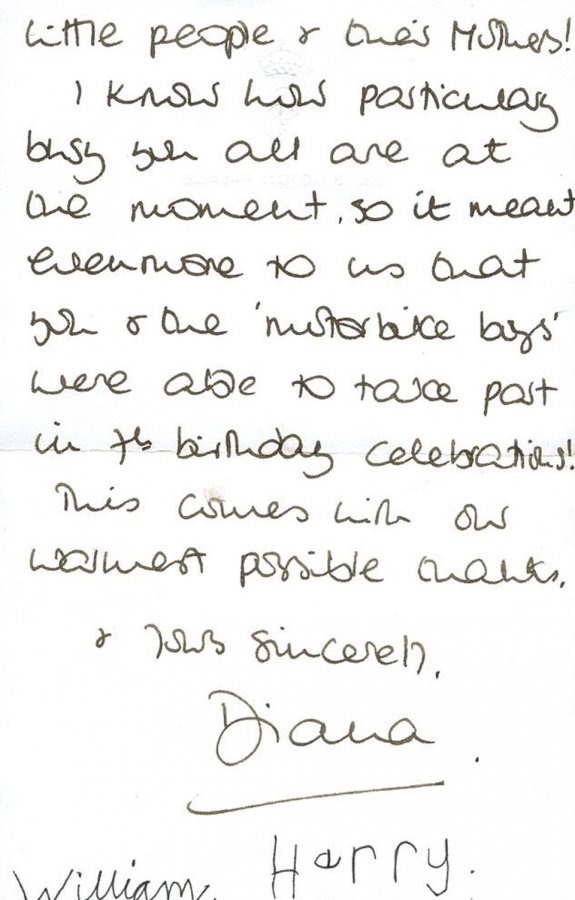 little people & their Mothers!
I know how particulary
busy you all are at
the moment, so it meant
even more to us that
you & the 'motorbike boys'
were able to take part
in 7th birthday celebrations!
This comes with our
warmest possible thanks.
& Yours Sincerely,
Diana.
Harry.
William.